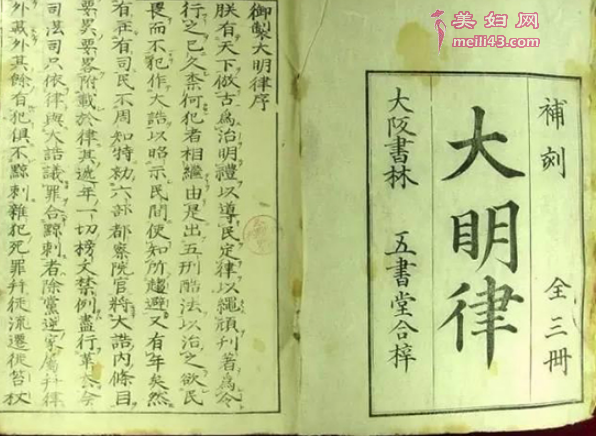 補刻 全三冊
大明律
大阪書林 五書堂合梓
御製大明律序
朕有天下倣古爲治明禮以導民定律以繩頑刊著爲令
行之已久柰何犯者相繼由是出五刑酷法以治之欲民
畏而不犯作大誥以昭示民間使知所趨避又有年矣然
有在有司民不周知特勑六部都察院官將大誥内條目
要畧附載於律其逓年一切榜文禁例盡行革去今
司法司只依律與大誥議罪合黥刺者除黨逆家屬幷律
外載外其餘有犯俱不黥刺雜犯死罪幷徒流遷徙笞杖
美妇网
meili43.com